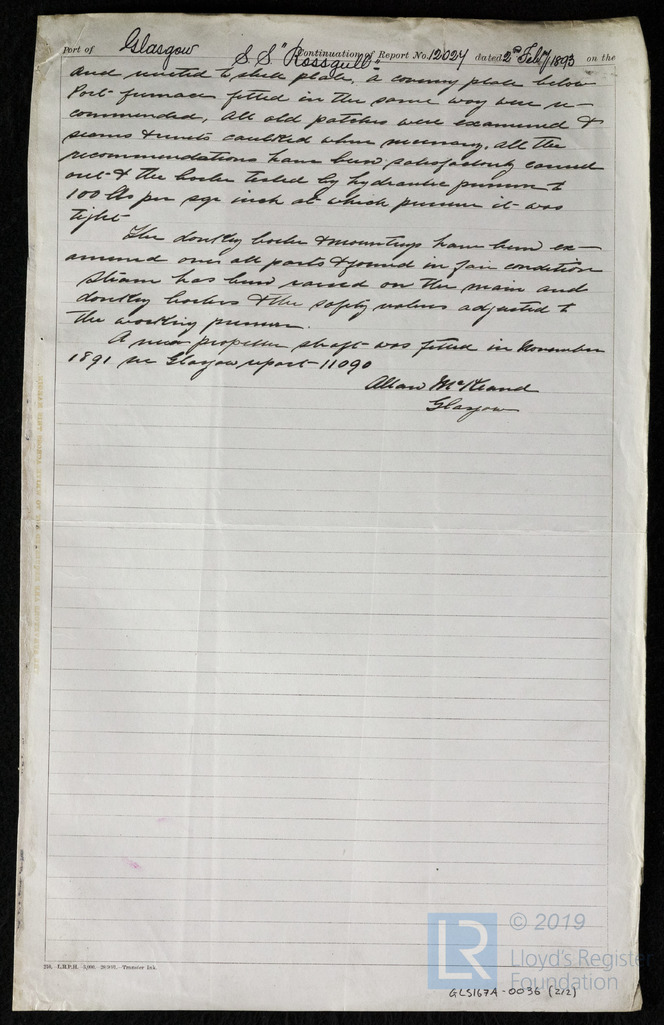 Port of Glasgow Continuation of Report No. 12024 dated 2nd Feby 1893 on the
S.S. "Rossgull"
and riveted to shell plate, a covering plate below
Port furnace fitted in the same way were re-
commended, all old patches were examined &
seams & rivets caulked when necessary, all the
recommendations have been satisfactorily carried
out & the boiler tested by hydraulic pressure to
100 lbs per sqr inch at which pressure it was
tight
The donkey boiler & mountings have been ex-
amined over all parts & found in fair condition
Steam has been raised on the main and
donkey boilers & the safety valves adjusted to
the working pressure.
A new propeller shaft was fitted in November
1891 see Glasgow report 11090
Glasgow
218.-L.R.P.H.-5,000.- -Transfer Ink.
LR
© 2019
Lloyd's Register
Foundation
GLS167A-0036 (2/2)